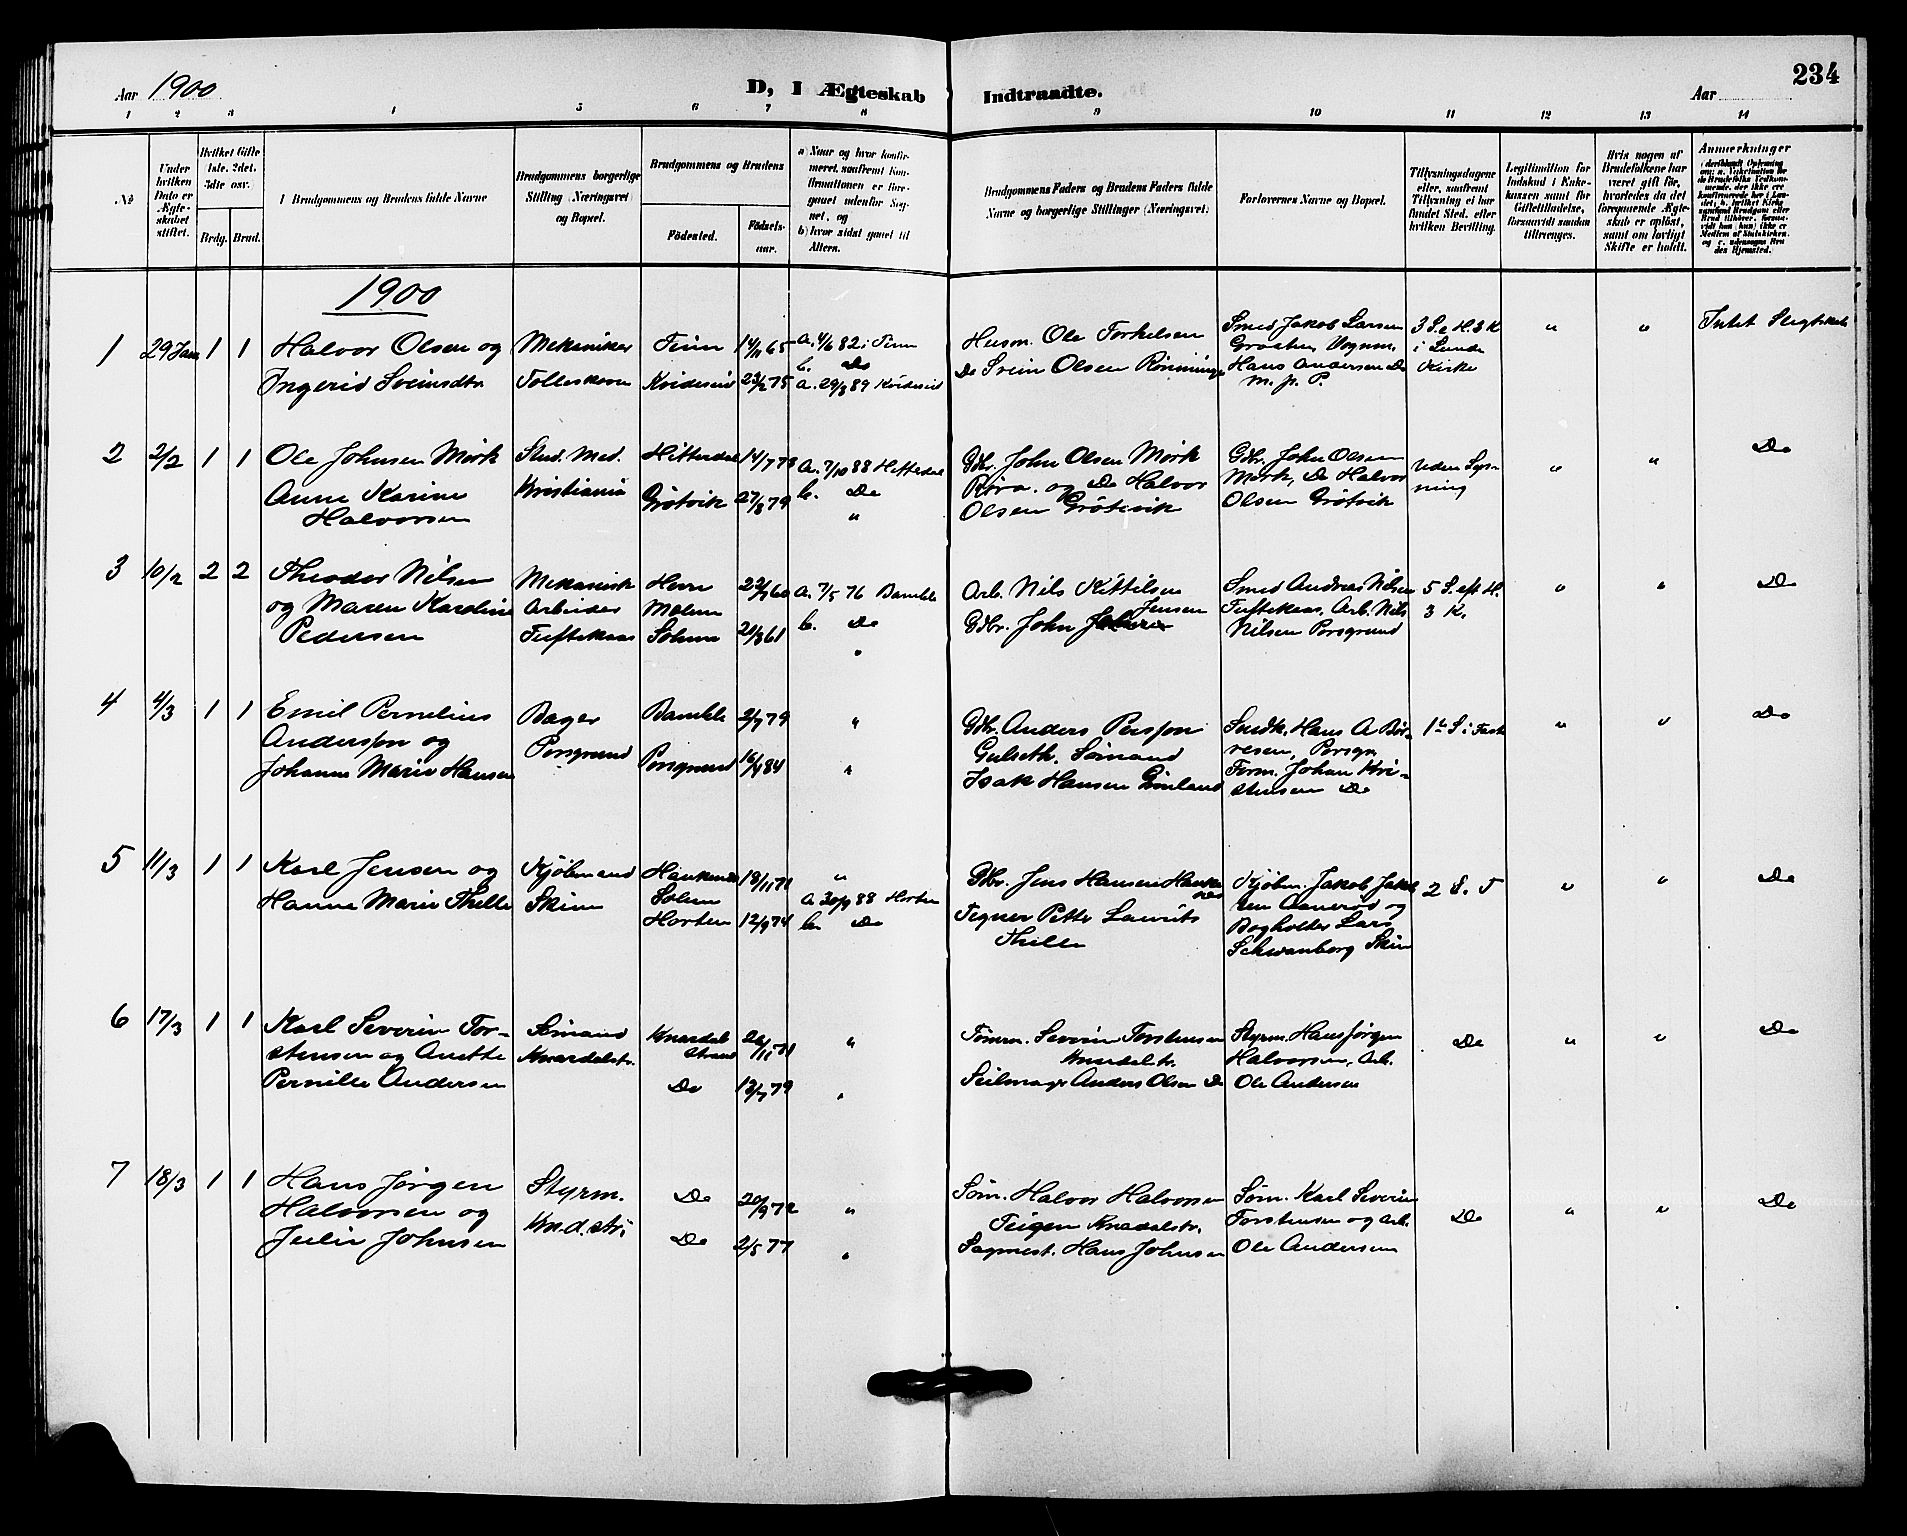 Aar 1900
D, I Ægteskab Indtraadte.
Aar
234
1 2 3 4 5 6 7 8 9 10 11 12 13 14
№
Under hvilken Dato er Ægteskabet stiftet.
Hvilket Gifte 1ste. 2det. 3die osv.
Brdg. Brud.
Brudgommens og Brudens fulde Navne
Brudgommens borgerlige Stilling (Næringsvei) og Bopæl.
Brudgommens og Brudens
Fødested. Fødselsaar.
a) Naar og hvor konfirmeret, samfremt Konfirmationen er foregaaet udenfor Sognet, og
b) hvor sidst gaaet til Alters.
Brudgommens Faders og Brudens Faders fulde Navne og borgerlige Stillinger (Næringsvei)
Forlovernes Navne og Bopæl.
Tillysningsdagene eller, samfremt Tillysning ei har fundet Sted, efter hvilken Bevilling.
Legitimation for Indskud i Enkekassen samt for Giftetilladelse, forsaavidt saadan tiltrænges.
Hvis nogen af Brudefolkene har været gift før, hvorledes da det foregaaende Ægteskab er opløst, samt om lovligt Skifte er holdt.
Anmærkninger
1900
1 29 Jan 1 1 Halvor Olsen og
Ingerid Sveinsdtr.
Mekaniker
Tolleskoven
Tinn 14/11 65
Kvideseid 23/2 75
a. 4/6 82 i Tinn
b. Do
a. 29/8 89 Kvideseid
Husm. Ole Torkelsen
Do Svein Olsen Rønninge
Smed Jakob Larsen
Graaten, Vognm.
Hans Andersen Do
m. p. P.
3 S. e H. 3 K
i Lunde
Kirke
" " Intet Slegtskab
2 2/2 1 1 Ole Johnsen Mørk
Anne Karine
Halvorsen
Stud. Med.
Kristiania
Hitterdal 14/7 73
Grøtvik 27/8 79
a. 7/10 88 Hitterdal
b. Do
"
Gbr. John Olsen Mørk
og Do Halvor
Olsen Grøtvik
Gbr. John Olsen
Mørk, Do Halvor
Olsen Grøtvik
Uden Lysning
" " Do
3 10/2 2 2 Theodor Nilsen
og Maren Karoline
Pedersen
Mekanisk
Arbeider
Tuftekaas
Herre
Molum
Solum 21/3 61
a. 7/5 76 Bamble
b. Do
"
Arb. Nils Kittilsen
Gbr. John Jensen
Smed Andreas Nilsen
Tuftekaas, Arb. Nils
Nilsen Porsgrund
5 S. eft H.
3 K.
" " Do
4 4/3 1 1 Emil Pernelius
Andersson og
Johanne Marie Hansen
Bager
Porsgrund
Bamble 2/7 79
Porsgrund 16/4 84
"
"
Gbr. Anders Persson
Gulseth. Sømand
Isak Hansen Grønland
Snedk. Hans A Børresen, Porsgr,
Form. Johan Kristensen Do
1ste S. i Faste
" " Do
5 11/3 1 1 Karl Jensen og
Hanne Marie Thelle
Kjøbmand
Skien
Solum 18/11 71
Horten 12/9 74
"
a 30/9 88 Horten
b. Do
Gbr. Jens Hansen
Tegner Petter Laurits
Thelle
Kjøbm. Jakob Jakobsen Aanerød og
Bogholder Lars
Schwanberg Skien
2 S. F
" " Do
6 17/3 1 1 Karl Severin Torstensen og Anette
Pernille Andersen
Sømand
Knardalstr.
Knardalstrand 26/11 71
Do 13/7 79
"
"
Tømm. Severin Torstensen
Knardalstr.
Seilmager Anders Olsen Do
Styrm. Hans Jørgen
Halvorsen, Arb.
Ole Andersen
Do " " Do
7 18/3 1 1 Hans Jørgen
Halvorsen og
Julie Johnsen
Styrm.
Knd.str.
Do 20/9 72
Do 2/5 77
"
"
Søm. Halvor Halvorsen
Teigen Knardalstr.
Sagmest. Hans Johnsen
Søm. Karl Severin
Torstensen og Arb.
Ole Andersen
Do " " Do